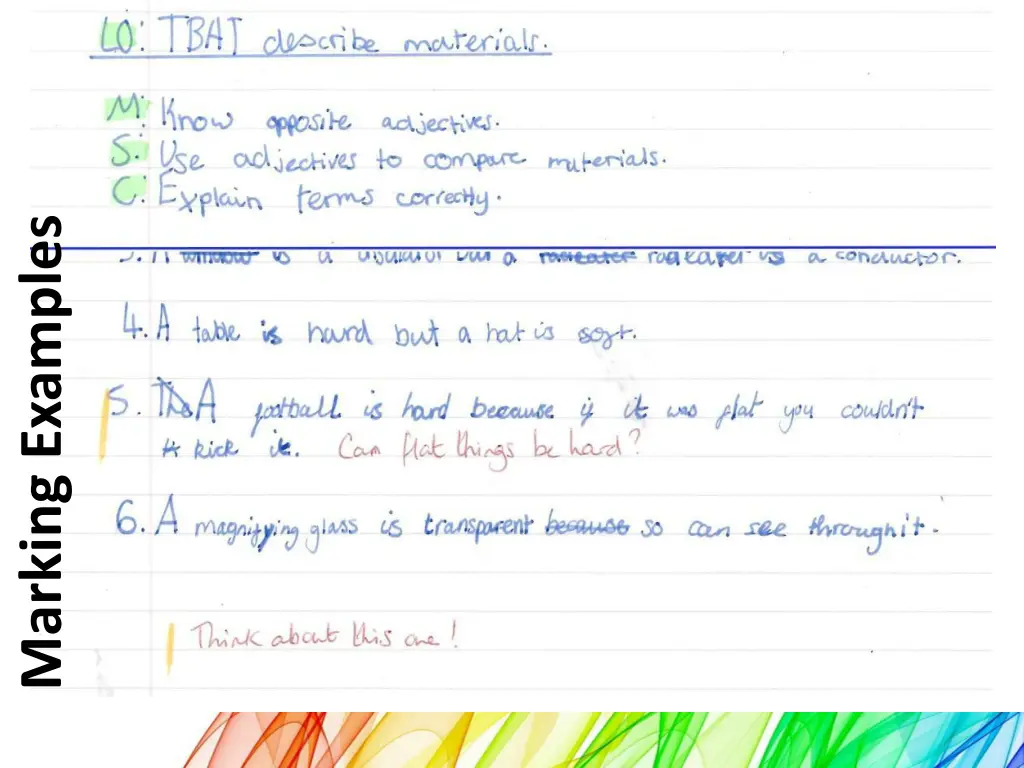 Marking Examples
LO: TBAT describe materials.
M: Know opposite adjectives.
S: Use adjectives to compare materials.
C: Explain terms correctly.
is a but a is a conductor.
4. A table is hard but a hat is soft.
5. A football is hard because if it was flat you couldn't
kick it. Can flat things be hard?
6. A magnifying glass is transparent because so can see through it.
Think about this one!